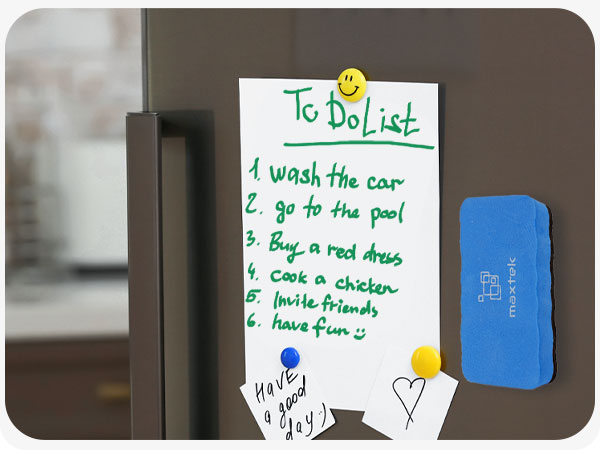 To Do List
1. wash the car
2. go to the pool
3. Buy a red dress
4. cook a chicken
5. Invite friends
6. have fun :)
HAVE
a good
day :)
maxtek